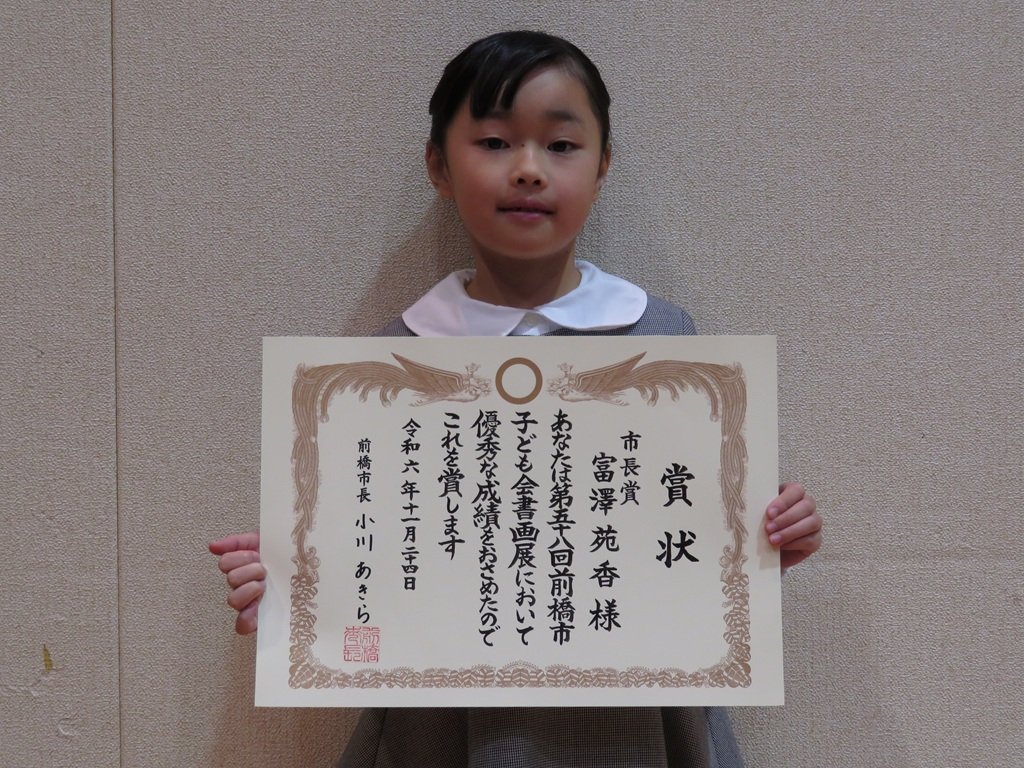 賞状
市長賞
富澤苑香様
あなたは第五十八回前橋市
子ども会書画展において
優秀な成績をおさめたので
これを賞します
令和六年十一月二十四日
前橋市長 小川あきら
前橋市長